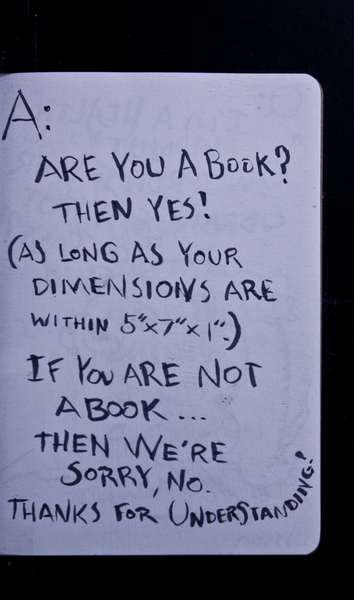 A:
ARE YOU A BOOK?
THEN YES!
(AS LONG AS YOUR
DIMENSIONS ARE
WITHIN 5"x7"x1".)
IF YOU ARE NOT
A BOOK...
THEN WE'RE
SORRY, NO.
THANKS FOR UNDERSTANDING!